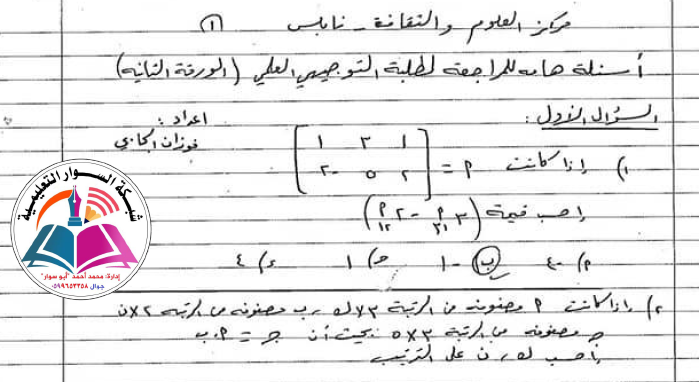 مركز العلوم والثقافة - نابلس ①
أسئلة هامه للمراجعة لطلبة التوجيهي العلمي (الورقة الثانيه)
السؤال الأول :
اعداد :
فوزان
١) إذا كانت P = [١ ٣ ١
٢ ٥ -٢]
احسب قيمة (٣ P٢١ - ٢ P١٢)
P) -٤ ب) -١ ج) ١ د) ٤
٢) إذا كانت P مصفوفه من الرتبة ٣×ل ، ب مصفوفه من الرتبه ٢×ن
ج مصفوفه من الرتبة ٣×٥ بحيث أن ج = P . ب
احسب ل ، ن على الترتيب
شبكة السوار التعليمية
إدارة: محمد أحمد "أبو سوار"
جوال ٠٥٩٩٦٥٣٣٥٨